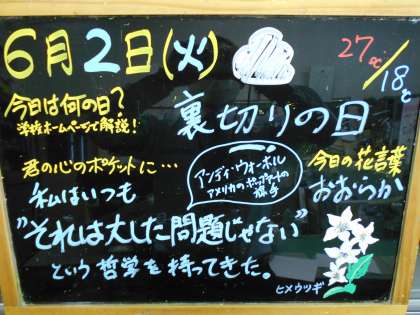 6月2日(火)
27℃/18℃
今日は何の日?
学校ホームページで解説!
裏切りの日
君の心のポケットに…
アンディ・ウォーホル
アメリカのポップアートの
旗手
今日の花言葉
おおらか
私はいつも
"それは大した問題じゃない"
という哲学を持ってきた。
ヒメウツギ